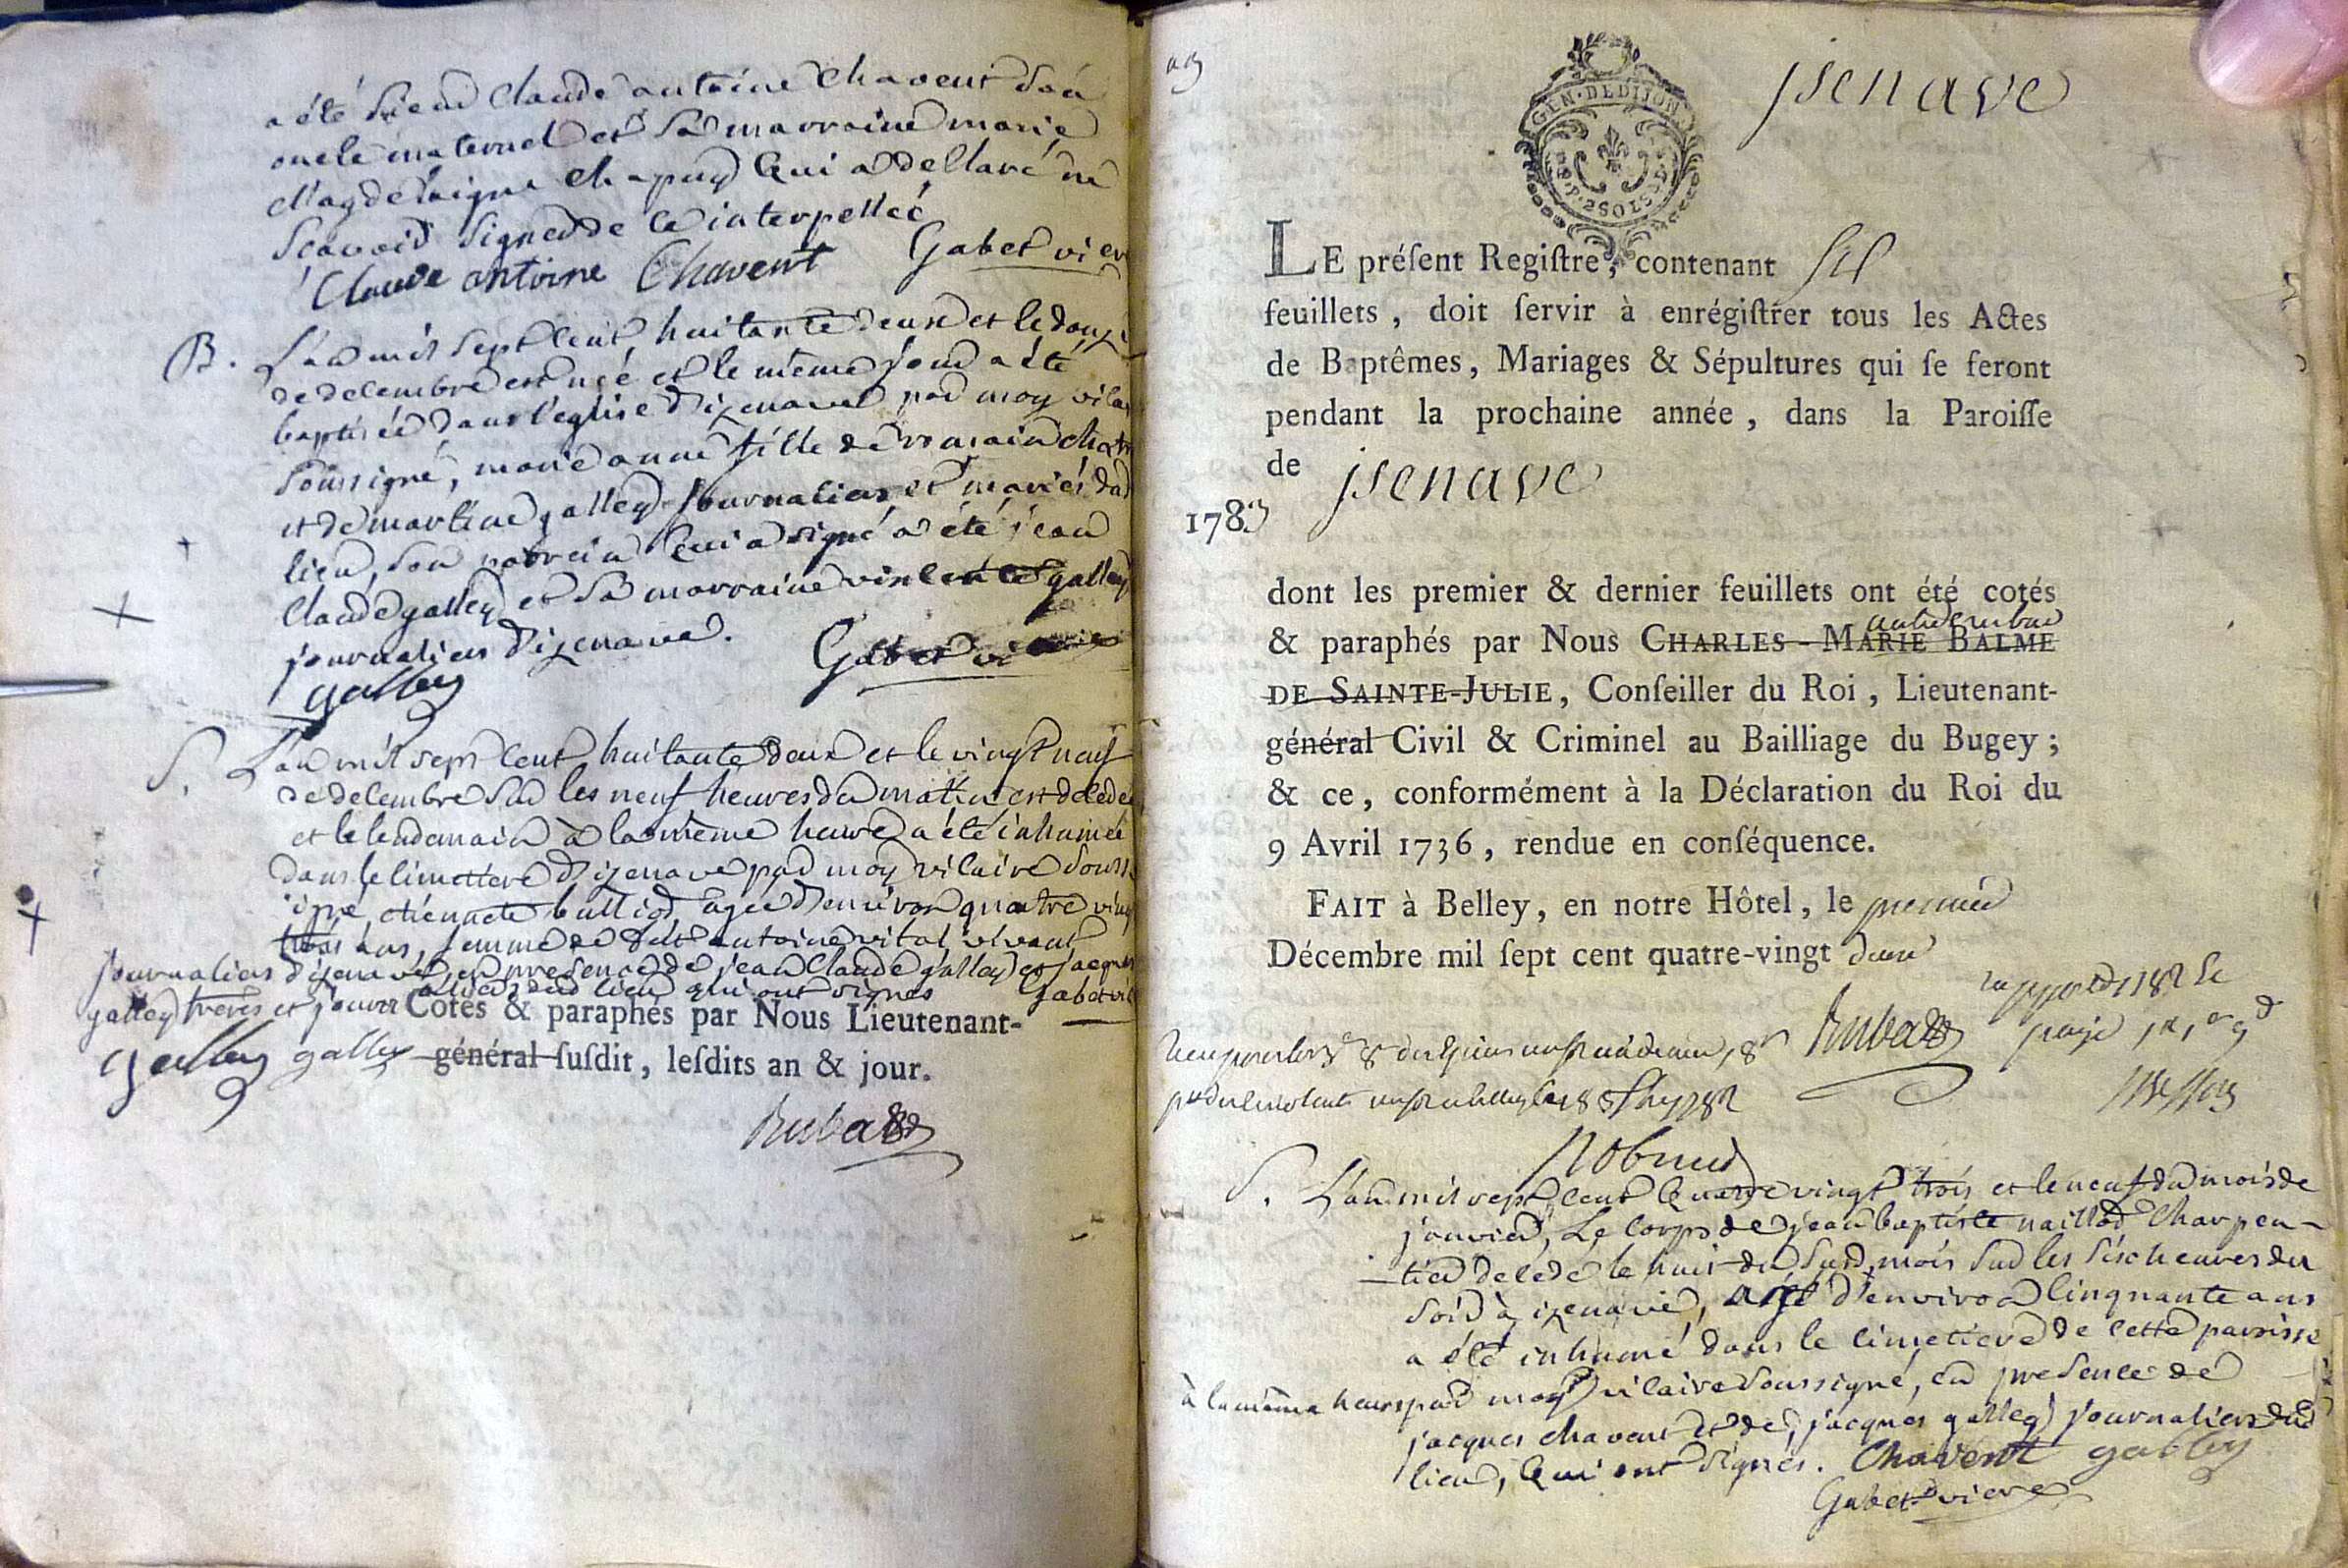 a été Sieur Claude antoine Chavent son
oncle maternel et Sa marraine marie
Magdelaigne Chapuy qui a declaré ne
scavoir signer de ce interpellée
Claude antoine Chavent Gabet vicr
B. L'an mil sept cent huitante deux et le douze
de decembre est née et le même jour a été
baptisée dans l'eglise d'izenave par moy vicai
soussigné, marie anne fille de romain
et de martine galley journaliers et mariés dud
lieu, son parrein qui a signé a été jean
Claude galley et sa marraine vincente galley
journaliers d'izenave. Gabet vi
galley
S. L'an mil sept cent huitante deux et le vingt neuf
de decembre sur les neuf heures du matin est decedée
et le lendemain à la même heure a été inhumée
dans le cimettiere d'izenave par moy vicaire souss
igné, etiennete bulliod agée d'environ quatre ving
trois ans, femme de antoine vital vivant
journaliers d'izenave, en presence de jean Claude galley et jacques
galley freres et journaliers dud lieu qui ont signés Gabet vic
Cotés & paraphés par Nous Lieutenant-
galley galley général ſuſdit, leſdits an & jour.
Rubat
jsenave
GEN. DE DIJON
2 SOLS
LE préſent Regiſtre, contenant six
feuillets, doit ſervir à enrégiſtrer tous les Actes
de Baptêmes, Mariages & Sépultures qui ſe feront
pendant la prochaine année, dans la Paroiſſe
de jsenave
1783
dont les premier & dernier feuillets ont été cotés
& paraphés par Nous CHARLES-MARIE BALME
DE SAINTE-JULIE, Conſeiller du Roi, Lieutenant-
général Civil & Criminel au Bailliage du Bugey;
& ce, conformément à la Déclaration du Roi du
9 Avril 1736, rendue en conſéquence.
FAIT à Belley, en notre Hôtel, le premier
Décembre mil ſept cent quatre-vingt deux
Rubat
S. L'an mil sept cent quatre vingt trois et le neuf du mois de
janvier, Le corps de jean baptiste naillod Charpen-
tier decédé le huit du susd. mois sur les six heures du
soir à izenave, agé d'environ cinquante ans
a été inhumé dans le cimetiere de cette paroisse
à la même heure par moy vicaire soussigné, en presence de
jacques chavent et de jacques galley journaliers dud
lieu, qui ont signés. Chavent galley
Gabet vicre